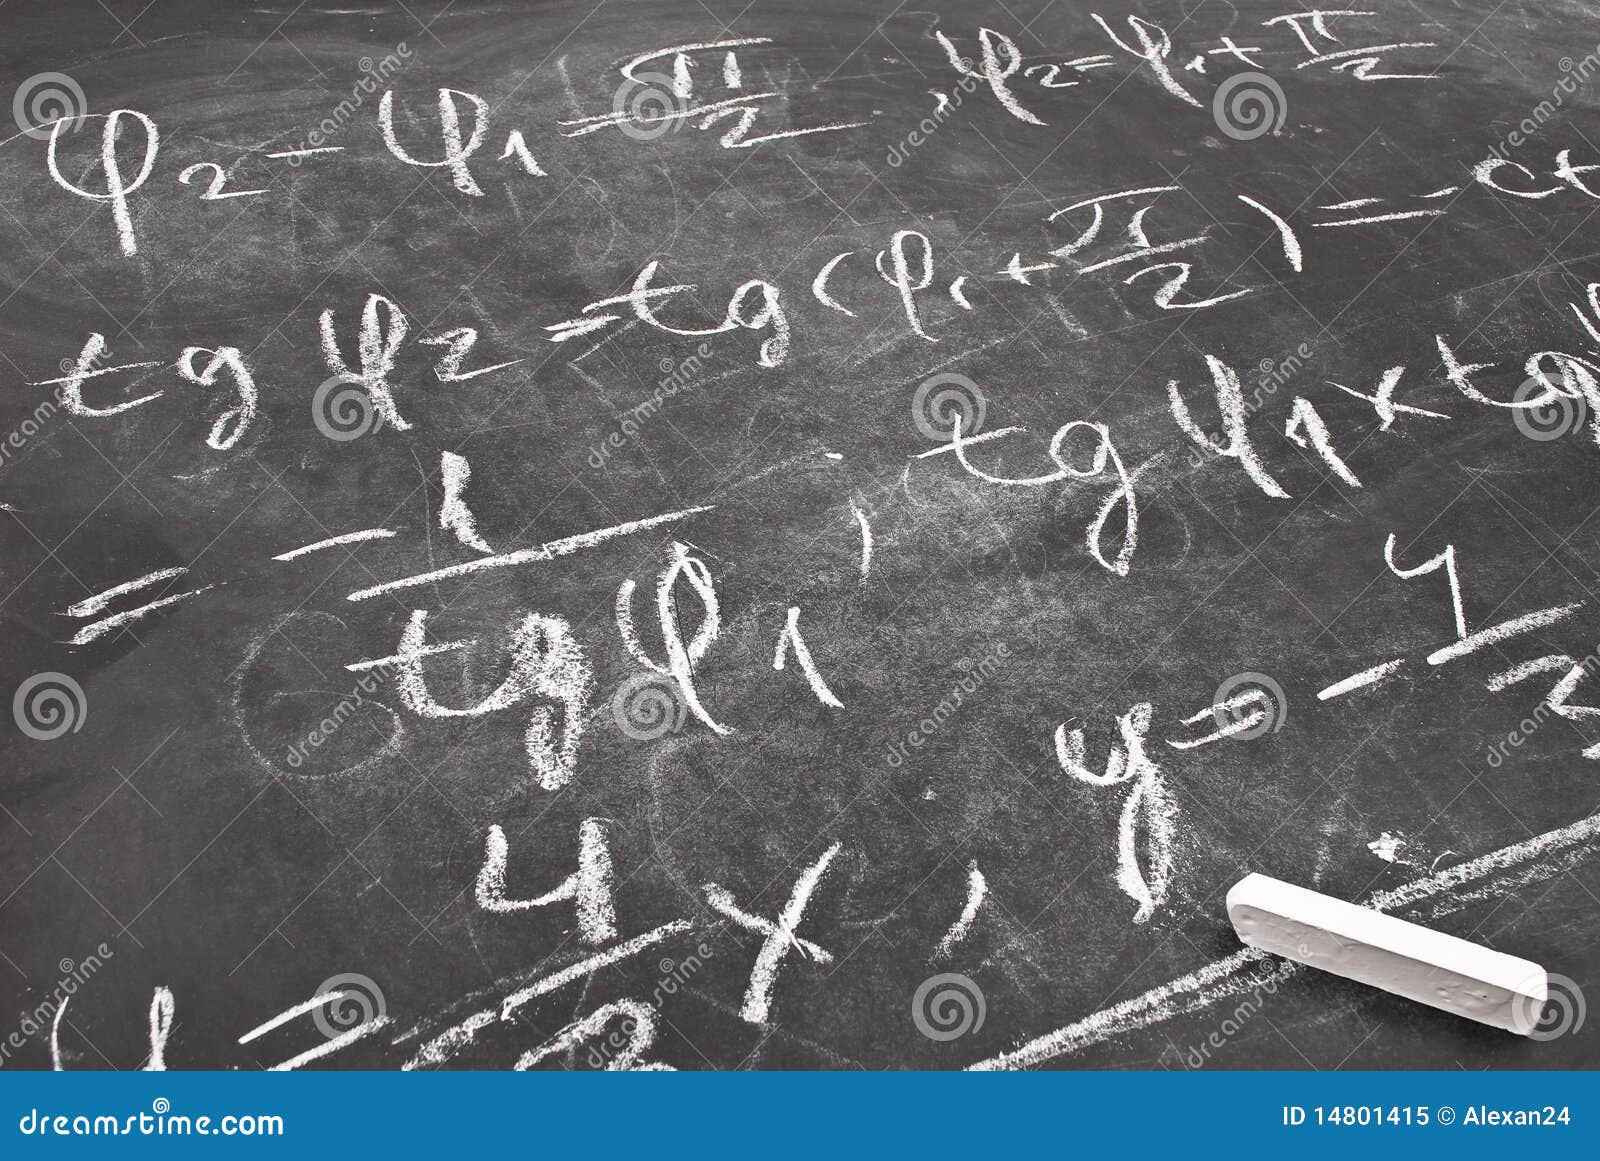 φ₂ - φ₁ = π/2 , φ₂ = φ₁ + π/2
tg φ₂ = tg (φ₁ + π/2) = -ct
= -1/tg φ₁ , tg φ₁ x tg φ
y = -4/3
y = 4/3 x ,
dreamstime.com
ID 14801415 © Alexan24